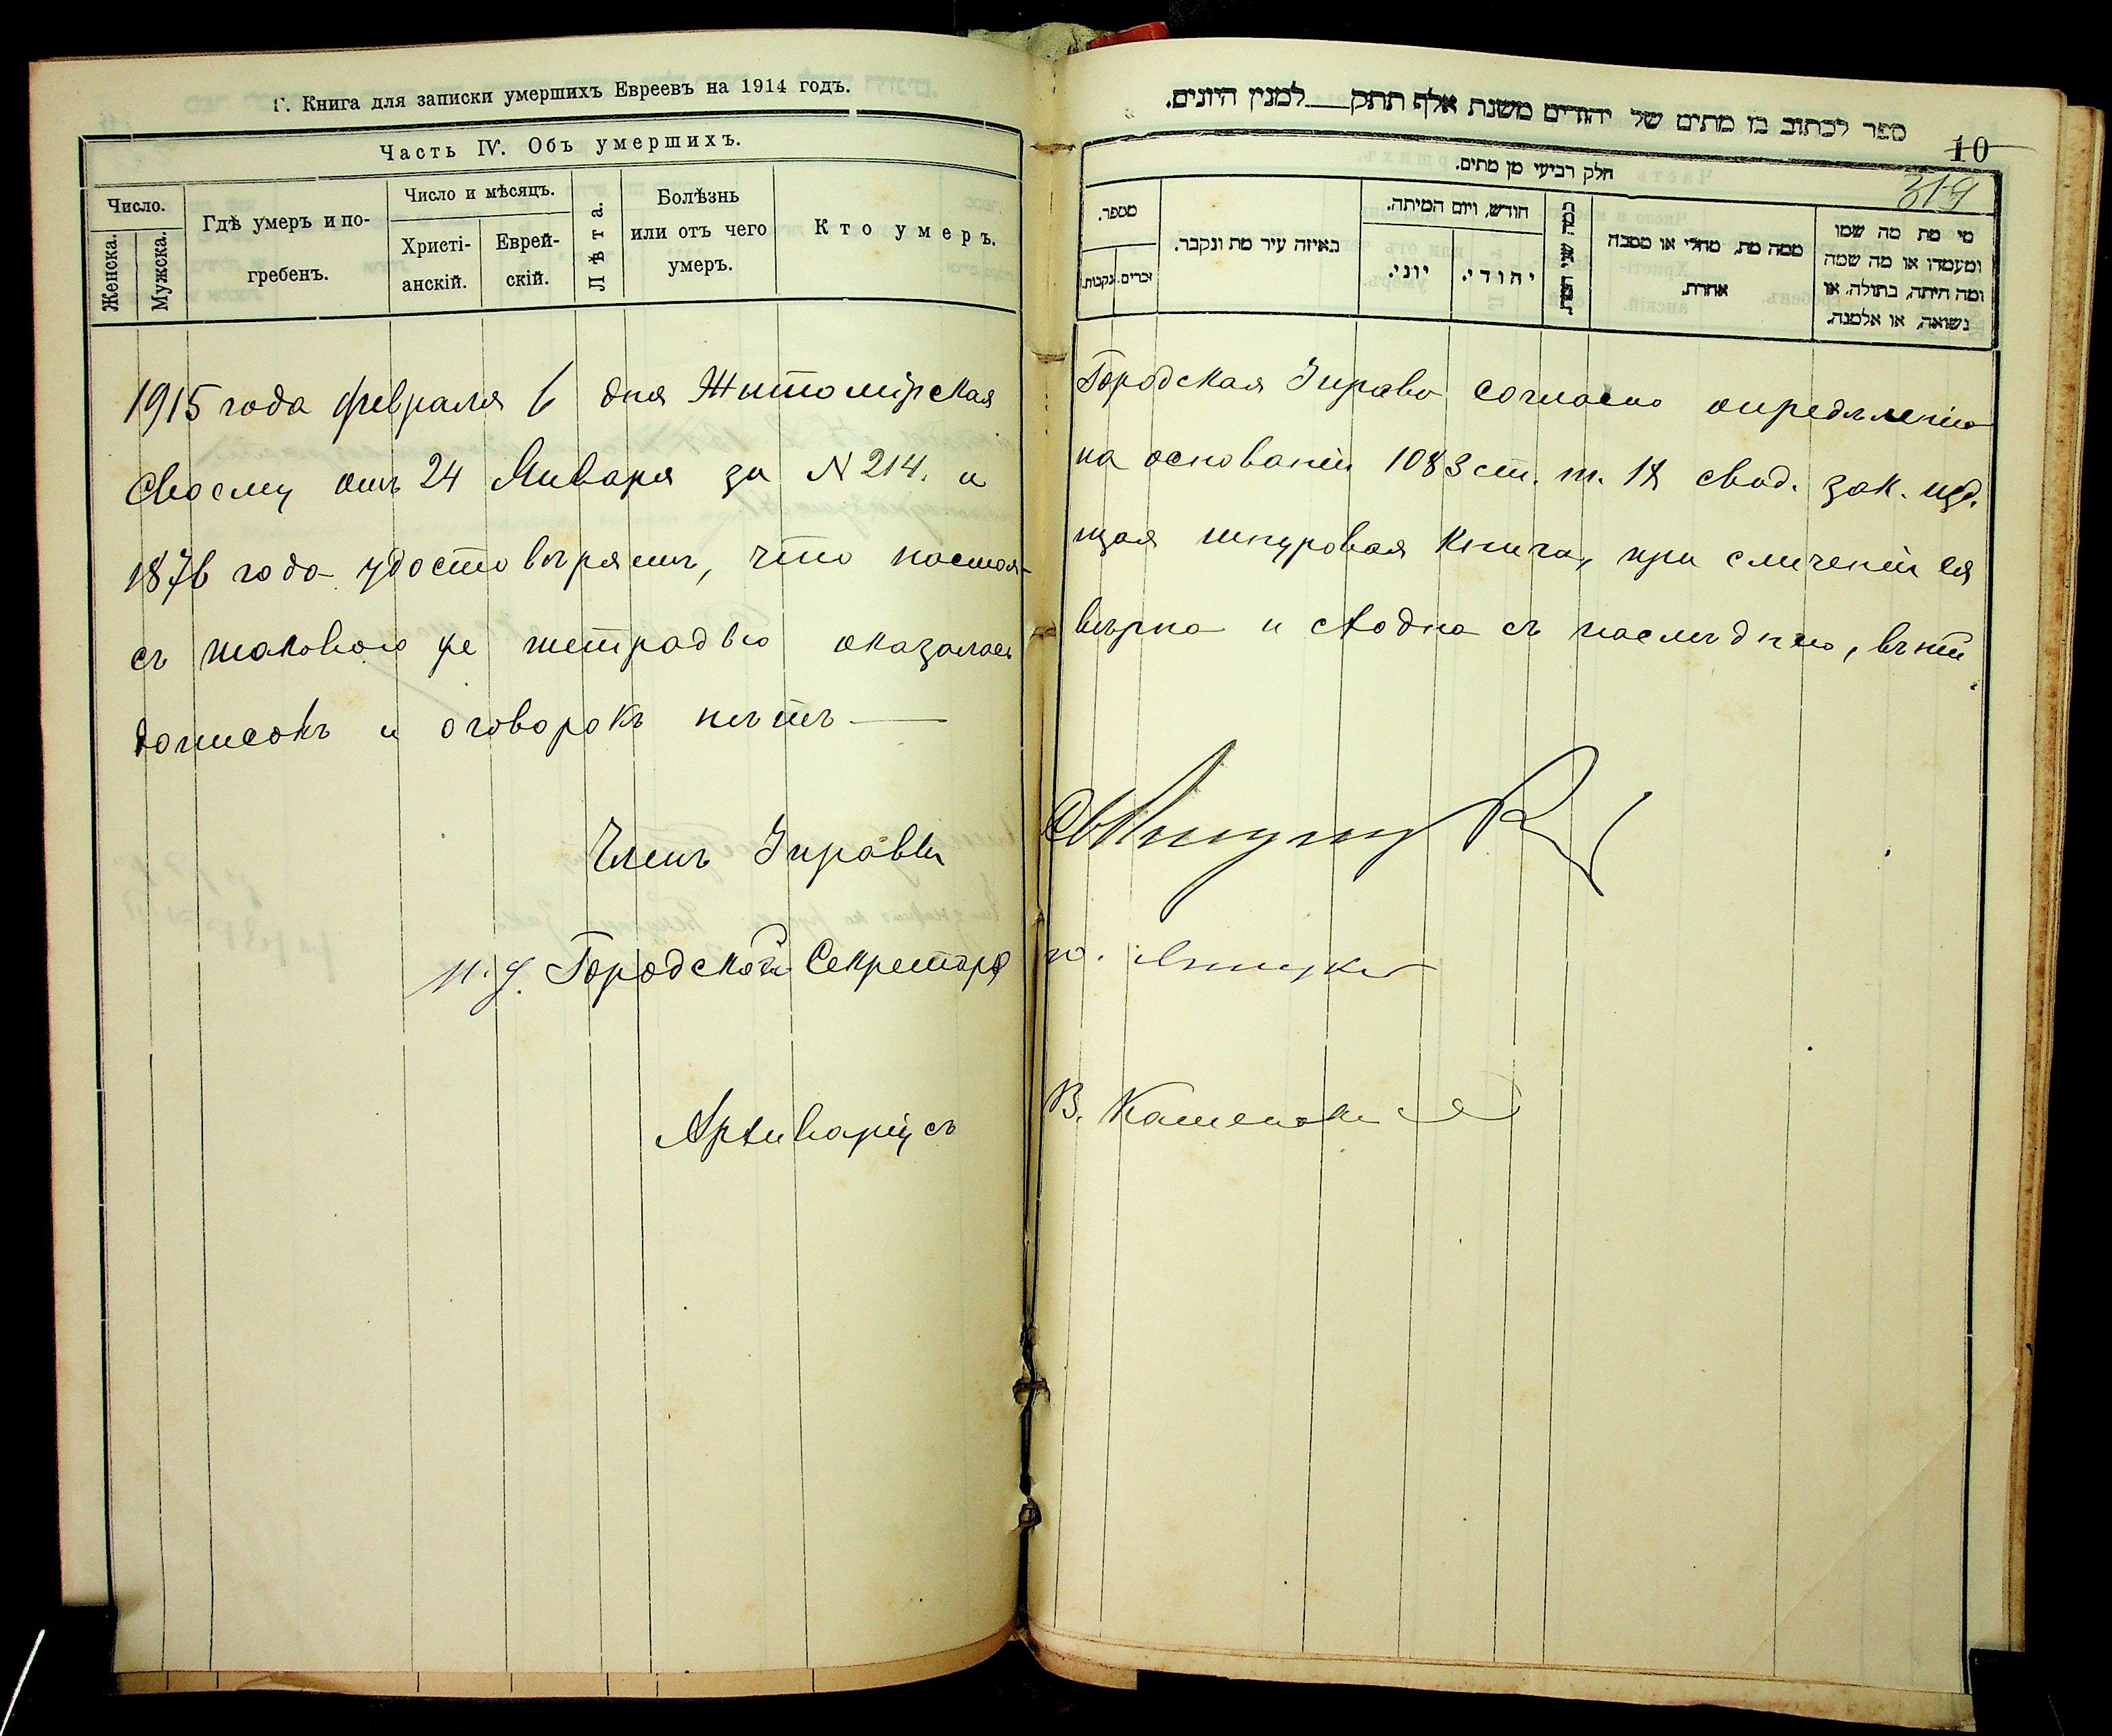 Г. Книга для записки умершихъ Евреевъ на 1914 годъ.
Часть IV. Объ умершихъ.
Число.
Женска.
Мужска.
Гдѣ умеръ и по-
гребенъ.
Число и мѣсяцъ.
Христі-
анскій.
Еврей-
скій.
Лѣта.
Болѣзнь
или отъ чего
умеръ.
Кто умеръ.
ספר לכתוב בו מתים של יהודים משנת אלף תתק למנין היונים.
10
319
חלק רביעי מן מתים.
מספר.
נקבות.
זכרים.
באיזה עיר מת ונקבר.
חודש, ויום המיתה.
יוני.
יהודי.
ממה מת, מחלי או מסבה
אחרת.
מי מת מה שמו
ומעמדו או מה שמה
ומה היתה, בתולה, או
נשואה, או אלמנה.
1915 года февраля 6 дня Житомірская Городская Управа согласно опредѣленію
своему отъ 24 Января за N 214. и на основаніи 1083 ст. т. IX свод. зак. изд.
1876 года удостовѣряетъ, что настоя-щая шнуровая книга, при сличеніи ея
съ таковою же тетрадью оказалась вѣрна и сходна съ послѣднею, въ ней
дописокъ и оговорокъ нѣтъ
Членъ Управы
И. д. Городского Секретаря
Архиваріусъ В.